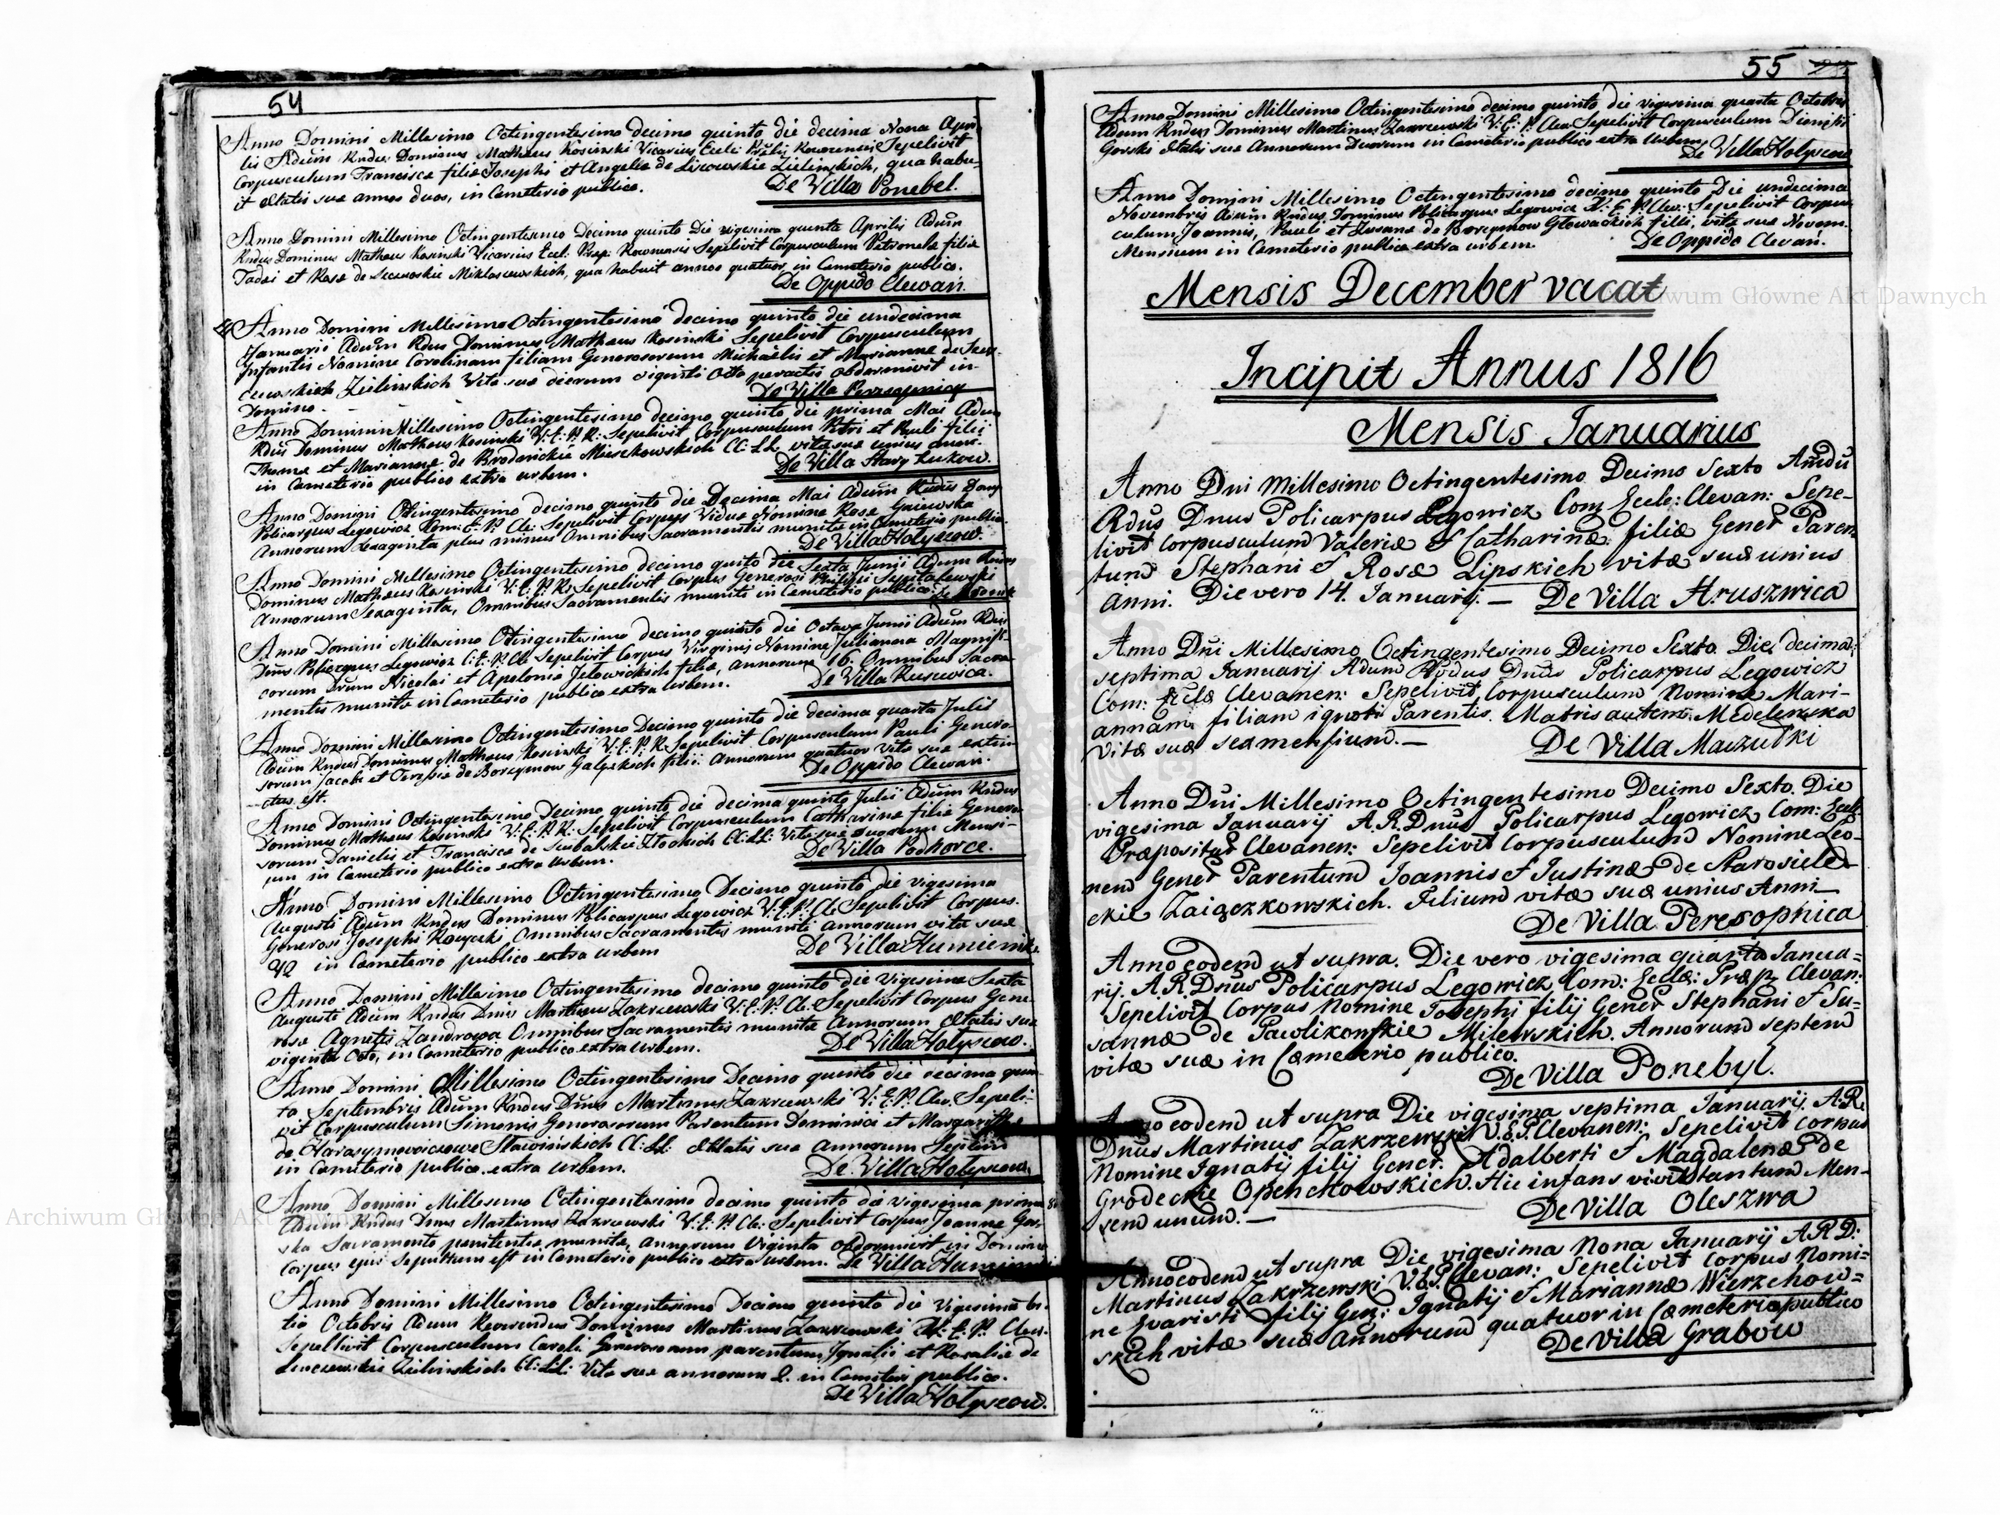 54
Anno Domini Millesimo Octingentesimo decimo quinto die decima Nona Apri-
lis Adum Rndus Dominus Mathaus Kosinski Vicarius Eccli Prlis Rowenensis Sepelivit
Corpusculum Francisca filia Josephi et Angela de Lisowskie Zielinskich, qua habu-
it Etatis sua annos duos, in Cemeterio publico.
De Villa Ponebel.
Anno Domini Millesimo Octingentesimo Decimo quinto Die vigesima quinta Aprilis Adum
Rndus Dominus Mathaus Kosinski Vicarius Eccl. Prap. Rownensis Sepelivit Corpusculum Petronela filia
Tadei et Rosa de Miklaszewskich, qua habuit annos quatuor, in Cemeterio publico.
De Oppido Clewan.
Anno Domini Millesimo Octingentesimo decimo quinto die undecima
Januarii Adum Rdus Dominus Mathaus Kosinski Sepelivit Corpusculum
Infantis Nomine Carolinam filiam Generosorum Michaelis et Marianna de
Zielinskich Vita sua dierum viginti Octo peractis obdormivit in
Domino.
De Villa Peresopnica
Anno Domini Millesimo Octingentesimo decimo quinto die prima Mai Adum
Rdus Dominus Mathaus Kosinski V. E. P. R. Sepelivit Corpusculum Petri et Pauli filii
Thoma et Marianna de Broderickie Mieszkowskich Cl: LL. vita sua unius
in Cemeterio publico extra urbem.
De Villa Stary Zukow.
Anno Domini Octingentesimo decimo quinto die Decima Mai Adum Rndus Dnus
Policarpus Legowicz Com: E. P. Cle: Sepelivit Corpus Vidua Nomine Rosa Gniewska
Annorum sexaginta plus minus Omnibus Sacramentis munita in Cemeterio publico.
De Villa Holyszow.
Anno Domini Millesimo Octingentesimo decimo quito die Sexta Junii Adum Rndus
Dominus Mathaus Kosinski V. E. P. R. Sepelivit Corpus Generosi Philipi
Annorum Sexaginta, Omnibus Sacramentis munita in Cemeterio publico.
Anno Domini Millesimo Octingentesimo decimo quinto die Octava Junii Adum Rdus
Dnus Policarpus Legowicz C. E. P. Cle Sepelivit Corpus Virginis Nomine Julianna Magnifi-
corum Drum Nicolai et Apolonia Jelowickich filia, annorum 16. Omnibus Sacra
mentis munita in Cemeterio publico extra urbem.
De Villa Rusiwica.
Anno Domini Millesimo Octingentesimo Decimo quinto die decima quarta Julii
Adum Rndus Dominus Mathaus Kosinski V. E. P. R. Sepelivit Corpusculum Pauli Genero-
sorum Jacobi et Terefsia de Borcymow filii annorum quatuor vita sua extin
ctus est.
De Oppido Clewan.
Anno Domini Octingentesimo Decimo quinto die decima quinta Julii Adum Rndus
Dominus Mathaus Kosinski V. E. P. R. Sepelivit Corpusculum Catharina filia Genero
sorum Danielis et Francisca de Cl: LL: Vita sua duorum Mensi-
um in Cemeterio publico extra urbem.
De Villa Podhorce.
Anno Domini Millesimo Octingentesimo Decimo quinto die vigesima
Augusti Adum Rndus Dominus Policarpus Legowicz V. E. P. Cle Sepelivit Corpus.
Generosi Josephi Omnibus Sacramentis muniti annorum vita sua
42 in Cemeterio publico extra urbem
De Villa Humienik.
Anno Domini Millesimo Octingentesimo decimo quinto die Vigesima Sexta
Augusti Adum Rndus Dnus Martinus Zakrzewski V. E. P. Cl. Sepelivit Corpus Gene-
rosa Agnetis Zandrowa Omnibus Sacramentis munita Annorum Etatis sua
viginta Octo, in Cemeterio publico extra urbem.
De Villa Holyszow.
Anno Domini Millesimo Octingentesimo Decimo quinto die decima quin-
ta Septembris Adum Rndus Dnus Martinus Zakrzewski V. E. P. Clev. Sepeli-
vit Corpusculum Simonis Generosorum Parentum Dominica et Margaritha
de Harasymowiczowe Cl: LL. Etatis sua annorum Septem
in Cemeterio publico extra urbem.
De Villa Holyszow.
Anno Domini Millesimo Octingentesimo decimo quinto die vigesima prima
Adum Rndus Dnus Martinus Zakrzewski V. E. P. Cle: Sepelivit Corpus Joanna Gor-
ska Sacramento penitentia munita, annorum Viginta obdormivit in Domino
Corpus ejus Sepultum est in Cemeterio publico extra urbem.
De Villa
Anno Domini Millesimo Octingentesimo Decimo quinto die Vigesima ter-
tia Octobris Adum Reverendus Dominus Martinus Zakrzewski V. E. P. Clev.
Sepelivit Corpusculum Caroli Generosorum parentum Ignatii et Rosalia de
Zielinskich Cl: LL: Vita sua annorum 2. in Cemeterio publico.
De Villa Holyszow.
55
Anno Domini Millesimo Octingentesimo decimo quinto die vigesima quarta Octobris
Adum Rndus Dominus Martinus Zakrzewski V. E. P. Clev Sepelivit Corpusculum Dionisii
Gorski Etatis sua Annorum Duorum in Cemeterio publico extra Urbem
De Villa Holyszow
Anno Domini Millesimo Octingentesimo decimo quinto Die undecima
Novembris Adum Rndus Dominus Policarpus Legowicz K. E. P. Clev: Sepelivit Corpus
culum Joannis, Pauli et Zusana de Borcymow Glowackich filii, vita sua Novem
Mensium in Cemeterio publico extra urbem
De Oppido Clevan.
Mensis December vacat
Incipit Annus 1816
Mensis Januarius
Anno Dni Millesimo Octingentesimo Decimo Sexto Amdu
Rdus Dnus Policarpus Legowicz Com Eccle: Clevan: Sepe-
livit corpusculum Valeriæ et Catharinæ filiæ Gener Paren
tum Stephani et Rosæ Lipskich vitæ suæ unius
anni. Die vero 14. Januarij. — De Villa Hruszwica
Anno Dni Millesimo Octingentesimo Decimo Sexto Die decima
septima Januarij Adum Rndus Dnus Policarpus Legowicz
Com: Eclæ Clevanen: Sepelivit Corpusculum Nomine Mari-
annam filiam ignoti Parentis. Matris autem Medelewska
vitæ suæ sex mensium. —
De Villa Maczulki
Anno Dni Millesimo Octingentesimo Decimo Sexto. Die
vigesima Januarij A.R.Dnus Policarpus Legowicz Com: Eccle
Præpositur Clevanen: Sepelivit Corpusculum Nomine Leo-
nem Gener Parentum Joannis et Justinæ de Starosiele
ckie Zaięczkowskich. Filium vitæ suæ unius Anni
De Villa Peresopnica
Anno eodem ut supra. Die vero vigesima quarta Janua=
rij. A.R.Dnus Policarpus Legowicz Com: Eccle: Præp. Clevan:
Sepelivit Corpus Nomine Josephi filij Gener Stephani et Su=
sannæ de Pawlikowskie Milewskich. Annorum septem
vitæ suæ in Cæmeterio publico.
De Villa Ponebyl.
Anno eodem ut supra Die vigesima septima Januarij A.R.
Dnus Martinus Zakrzewski V.E.P. Clevanen: Sepelivit Corpus
Nomine Ignatij filij Gener. Adalberti et Magdalenæ de
Grodeckie Openchowskich. Hic infans vivit tantum Men-
sem unum. —
De Villa Oleszwa
Anno eodem ut supra Die vigesima Nona Januarij A.R.D:
Martinus Zakrzewski V.E.P. Clevan: Sepelivit Corpus Nomi=
ne Evaristi filij Gen: Ignatij et Mariannæ Wierzchow=
skich vitæ suæ Annorum quatuor in Cæmeterio publico
De Villa Grabow
Archiwum Główne Akt Dawnych
Archiwum Główne Akt Dawnych